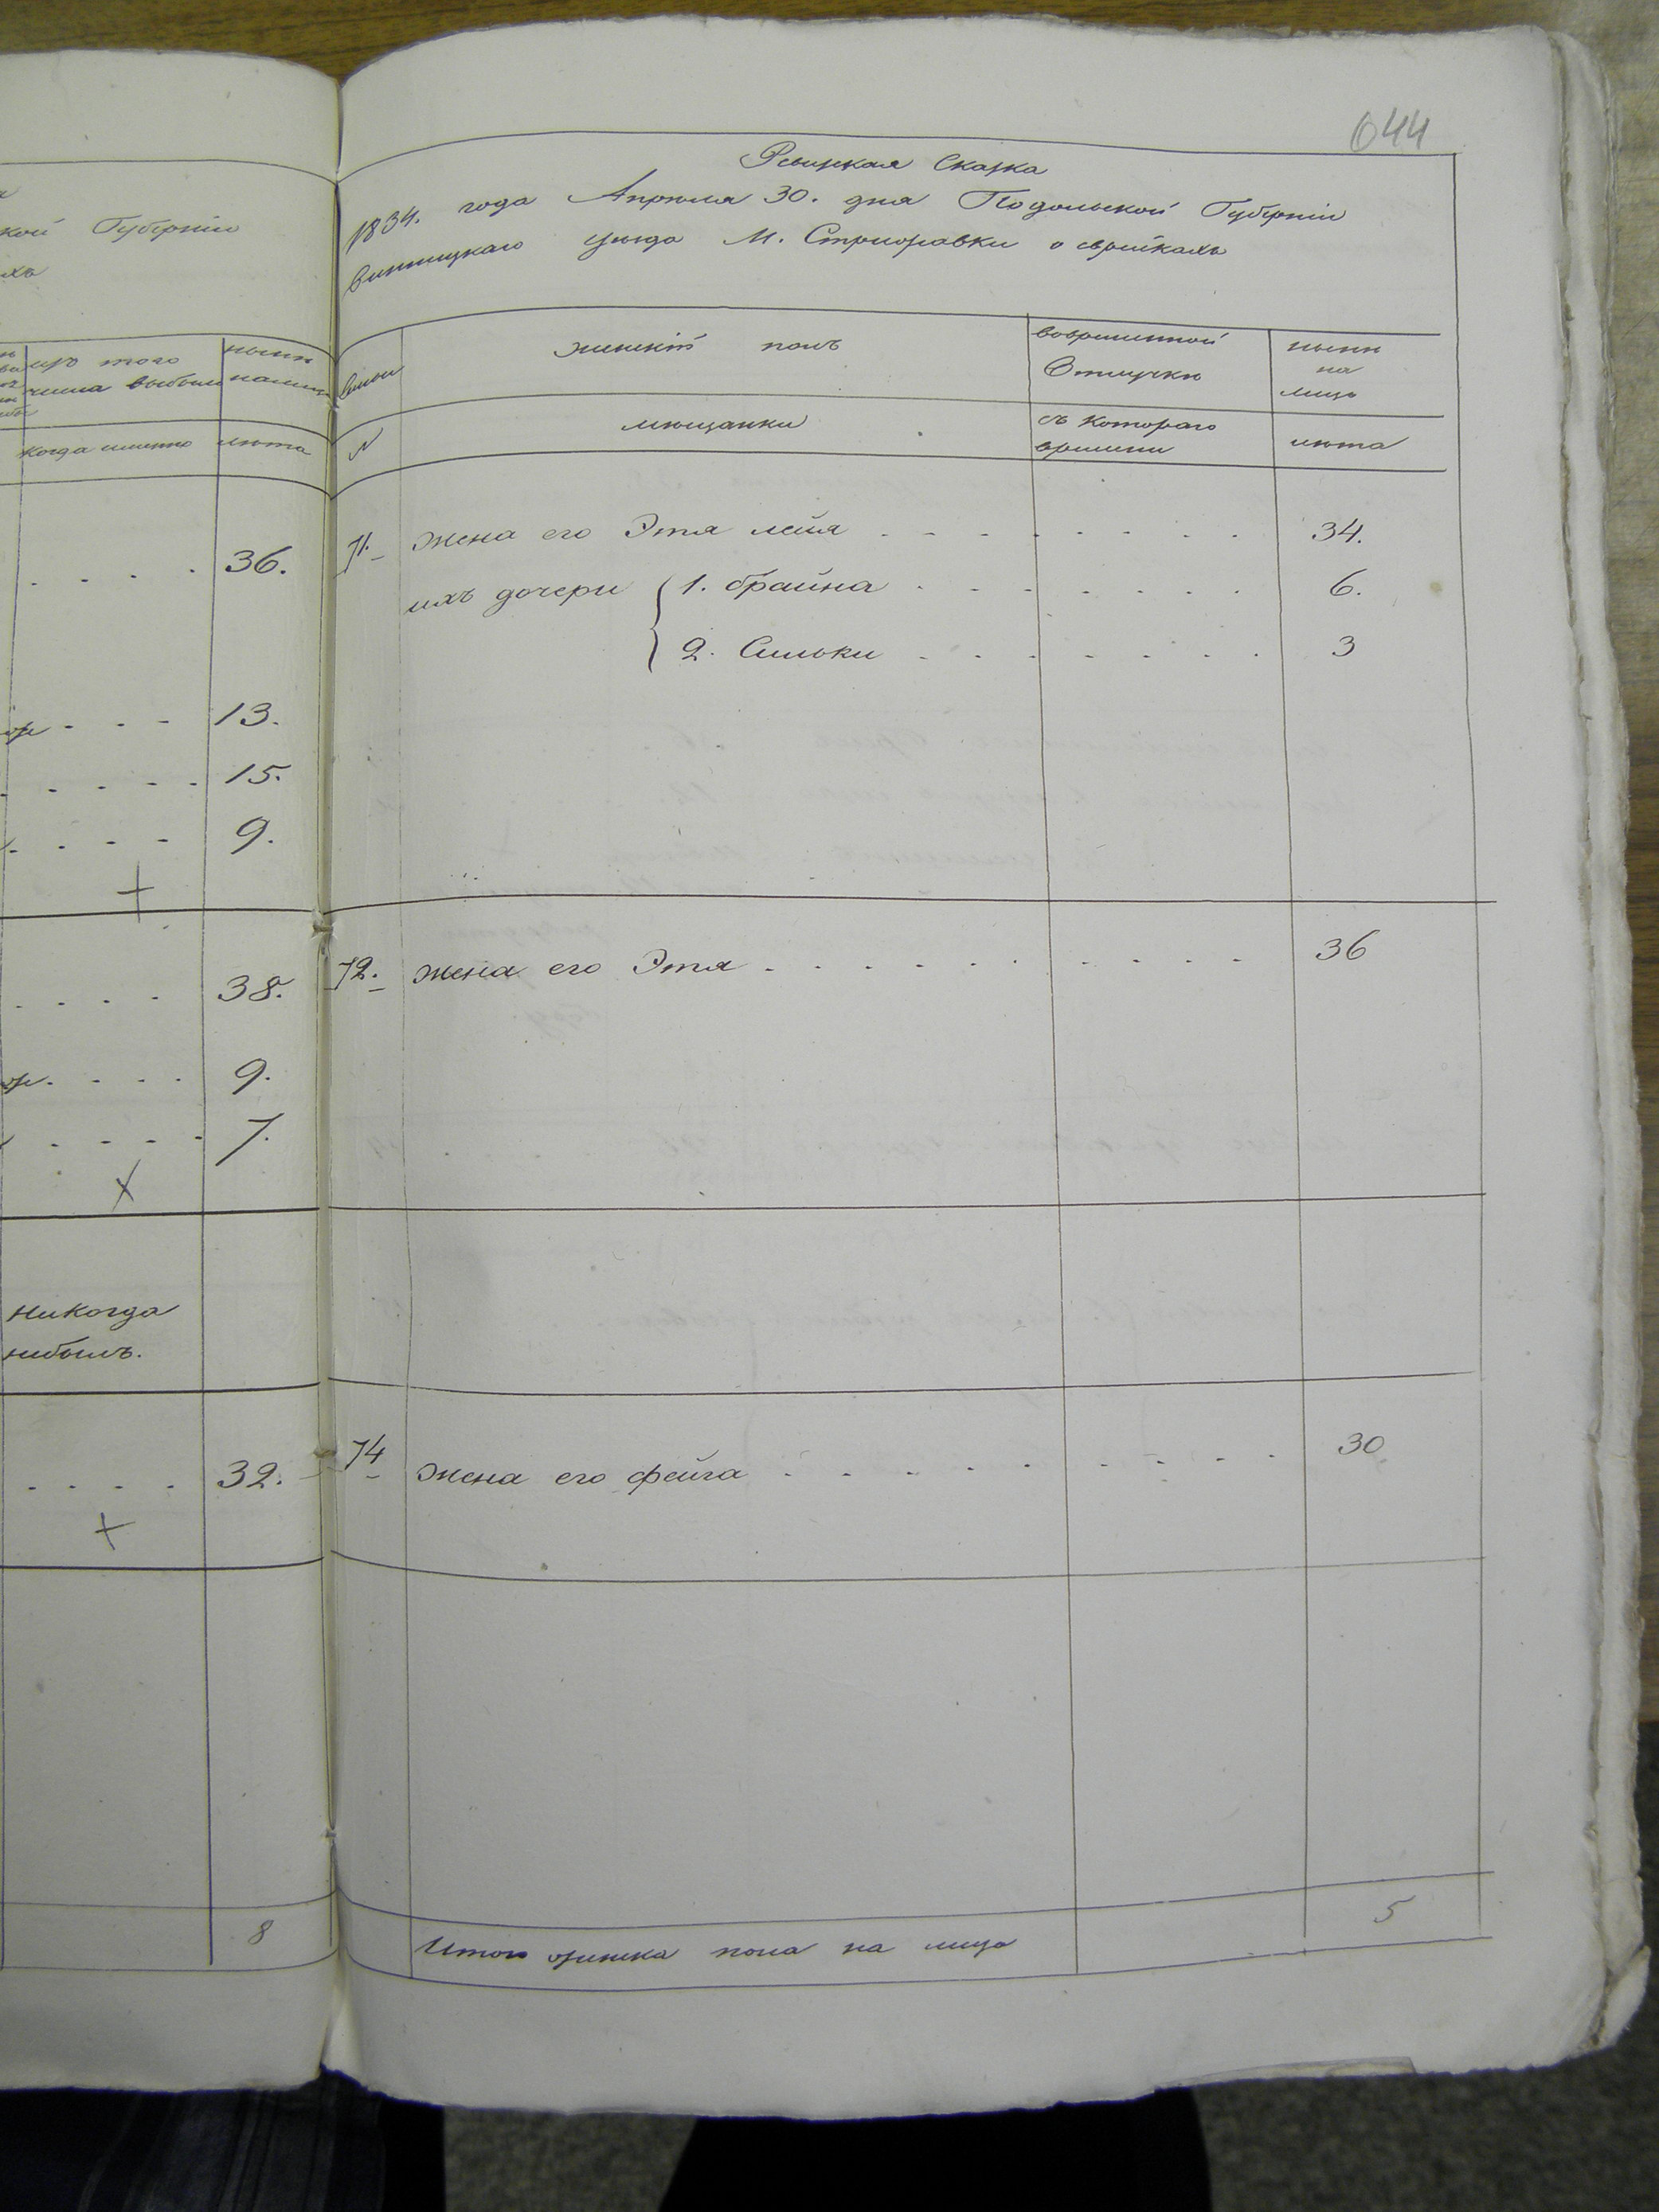 кой Губерніи
хъ
изъ того
числа выбыли
нынѣ
налицо
когда именно
лѣта
36.
13.
15.
9.
38.
9.
7.
никогда
небылъ.
32.
8
644
Ревизкая Сказка
1834. года Апреля 30. дня Подольской Губерніи
винницкаго уѣзда М. Стрижавки о еврейкахъ
женскій полъ
вовременной
Отлучкѣ
нынѣ
на
лицо
N
мещанки
съ котораго
времени
лѣта
71. жена его Этя лейя 34.
ихъ дочери 1. брайна 6.
2. Сильки 3
72. жена его Этя 36
74 жена его фейга 30
Итого женска пола на лицо 5